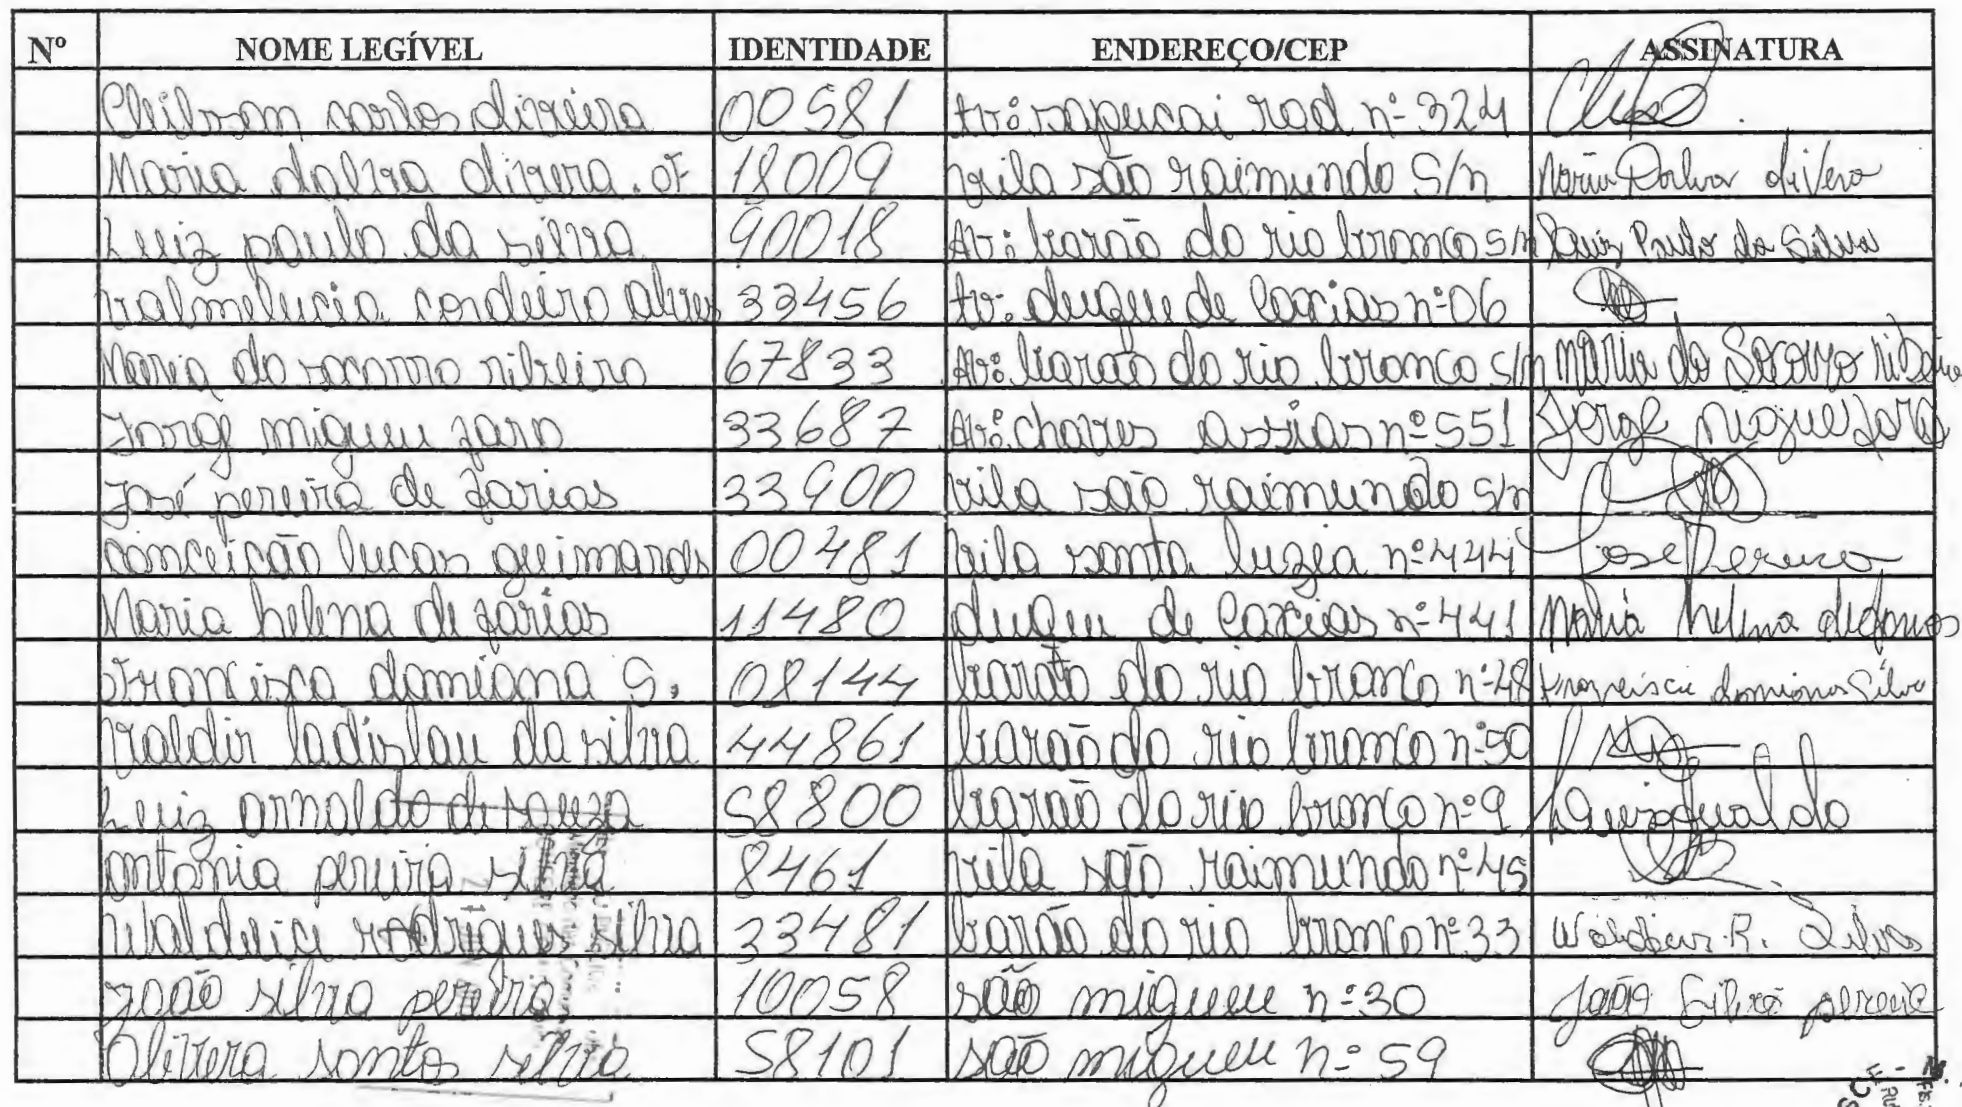 Nº NOME LEGÍVEL IDENTIDADE ENDEREÇO/CEP ASSINATURA
Cleilsom carlos 00581 Av: sapucai rod nº 324
Maria dalva 18009 vila são raimundo S/n Maria Dalva
Luiz paulo da silva 90018 Av: barão do rio bromco S/n Luiz Paulo da Silva
valmelucia cordeiro alves 33456 Av: duque de Caxias nº 06
Maria do socorro ribeiro 67833 Av: barão do rio bromco S/n Maria do Socorro ribeiro
Jorge migueu fara 33687 Av: chaves nº 551 Jorge
José pereira de farias 33900 vila são raimundo S/n
conceição lucas guimaraes 00481 vila santa luzia nº 444 José Pereira
Maria helena de farias 11480 duqeu de Caxias nº 441 Maria helena de farias
Francisca damiana S. 08144 barão do rio bromco nº 48 damiana Silva
valdir ladislau da silva 44861 barão do rio bromco nº 50
Luiz arnaldo de souza 58800 barão do rio bromco nº 9
antonia pereira silva 8461 vila são raimundo nº 45
rodrigues silva 33481 barão do rio bromco nº 33 R. Silva
João silva pereira 10058 são migueu nº 30 João Silva pereira
Olivera santos silva 58101 são migueu nº 59